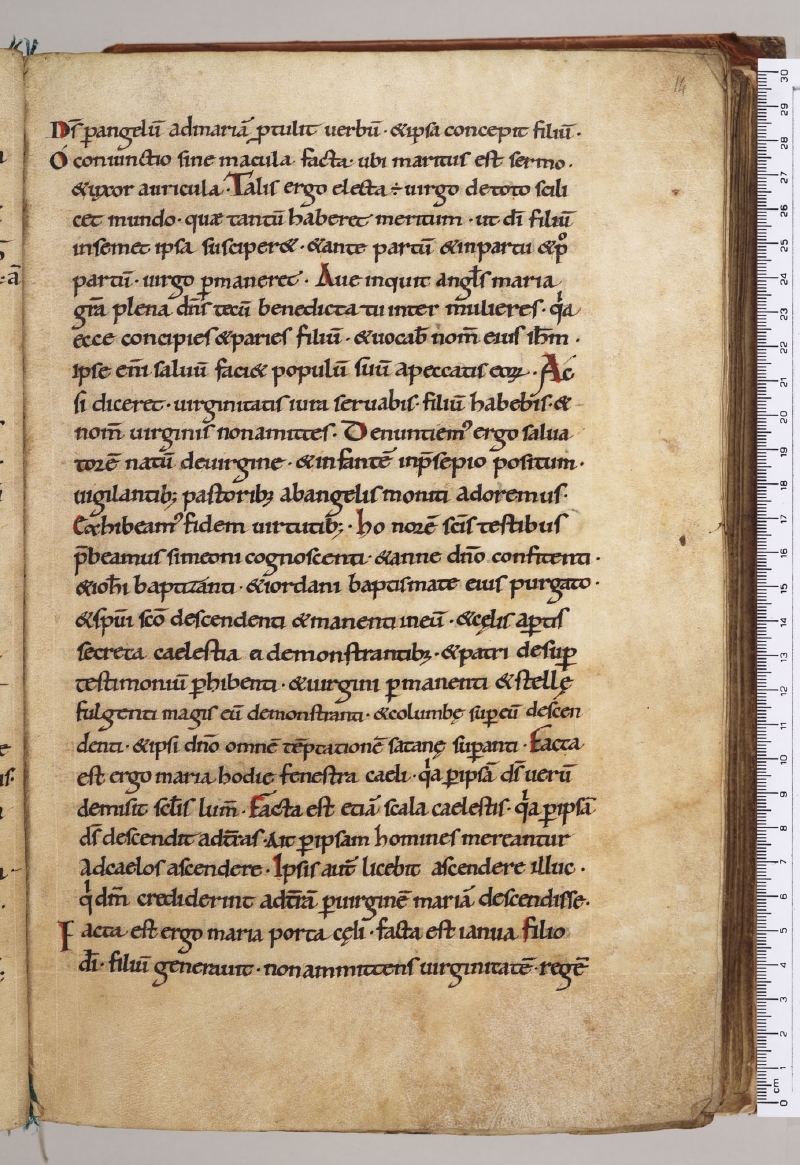 14
Dſ̄ pangelū admariā ꝓtulit uerbū · &ipſa concepit filiū ·
O coniunctio ſine macula facta · ubi maritus est ſermo .
&uxor auricula · Talis ergo electa ÷ uirgo detoto ſcili
cet mundo · quæ tantū haberet meritum · ut dī filiū
inſemet ipſa ſuſciper& · &ante partū &inpartu &p̊
partū · uirgo ꝑmaneret · Aue inquit angl̄s maria
gr̄a plena dn̄s tecū benedicta tu inter mulieres · qͥa
ecce concipieſ &paries filiū · &uocab̄ nom̄ eius ih̄m ·
ipse eni̅ ſaluū faci& populū ſuū apeccatis eoꝝ · Ac
ſi diceret · uirginitatis iura ſeruabis · filiū habebis · &
nom̄ uirginiſ nonamittes · Denuntiemꝰ ergo ſalua
torē natū deuirgine · &infantē inp̄ſepio poſitum ·
uigilantibꝫ paſtoribꝫ abangelis moniti adoremus ·
Exhibeamꝰ fidem uirtutibꝫ · ho norē ſcīs teſtibus
p̄beamus ſimeoni cognoſcenti · &anne dn̄o confitenti ·
&ioh̄i baptizanti · &iordani baptiſmate eius purgato ·
&ſpūi ſcō deſcendenti &manenti ineū · &cęlis aꝑtis
ſecreta caeleſtia ei demonſtrantibꝫ · &patri deſuꝑ
teſtimoniū ꝑhibenti · &uirgini ꝑmanenti &ſtellę
fulgenti magis eū demonſtranti · &columbę ſuꝑeū deſcen
denti · &ipſi dn̄o omnē tēptationē ſatanę ſuꝑanti · Facta
est ergo maria hodie feneſtra caeli · qͥa ꝑipſā dſ̄ uerū
demiſit ſcl̄is lum̄ · Facta eſt etiā ſcala caeleſtis · qͥa ꝑipſā
dſ̄ deſcendit adt̄ras · Ait ꝑipſam homines mereantur
Adcaelos aſcendere · Ipſis aut̄ licebit aſcendere illuc ·
qͥ dm̄ crediderint adt̄rā ꝑuirginē mariā deſcendiſſe ·
Facta eſt ergo maria porta cęli · facta eſt ianua filio
dī · filiū generauit · non ammittens uirginitatē · regē